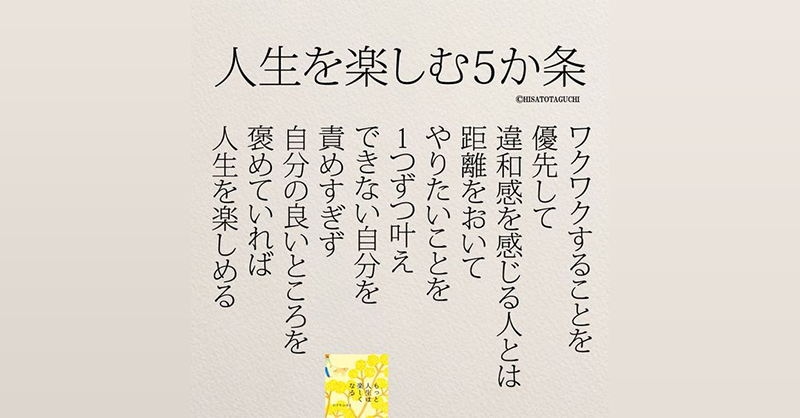 人生を楽しむ5か条
©HISATOTAGUCHI
ワクワクすることを
優先して
違和感を感じる人とは
距離をおいて
やりたいことを
1つずつ叶え
できない自分を
責めすぎず
自分の良いところを
褒めていれば
人生を楽しめる
もっと
人生は
楽しく
なる